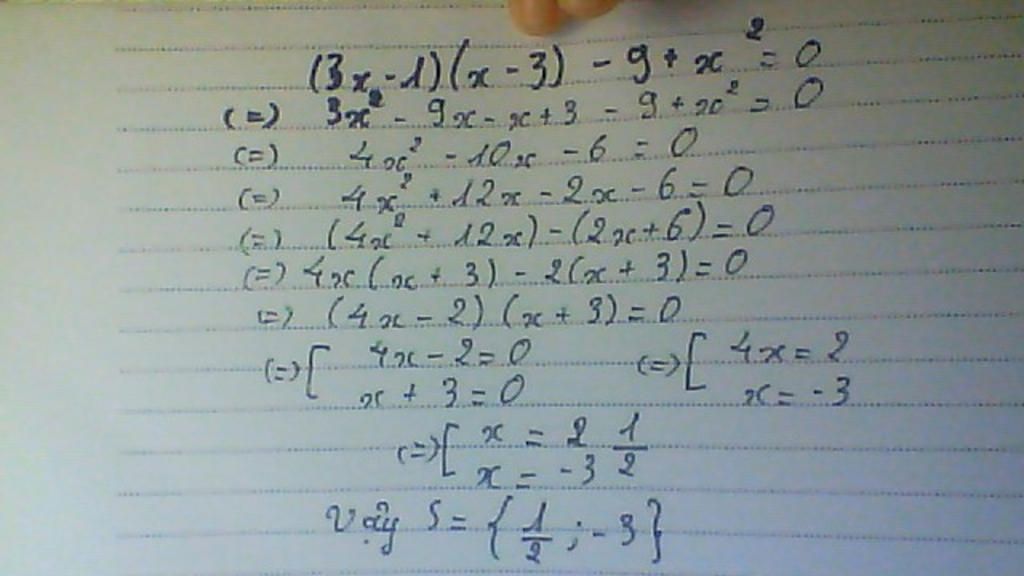 (3x - 1)(x - 3) - 9 + x² = 0
(=) 3x² - 9x - x + 3 - 9 + x² = 0
(=) 4x² - 10x - 6 = 0
(=) 4x² + 12x - 2x - 6 = 0
(=) (4x² + 12x) - (2x + 6) = 0
(=) 4x(x + 3) - 2(x + 3) = 0
(=) (4x - 2)(x + 3) = 0
(=) [ 4x - 2 = 0 (=) [ 4x = 2
x + 3 = 0 x = -3
(=) [ x = 2 1/2
x = -3
Vậy S = { 1/2 ; -3 }